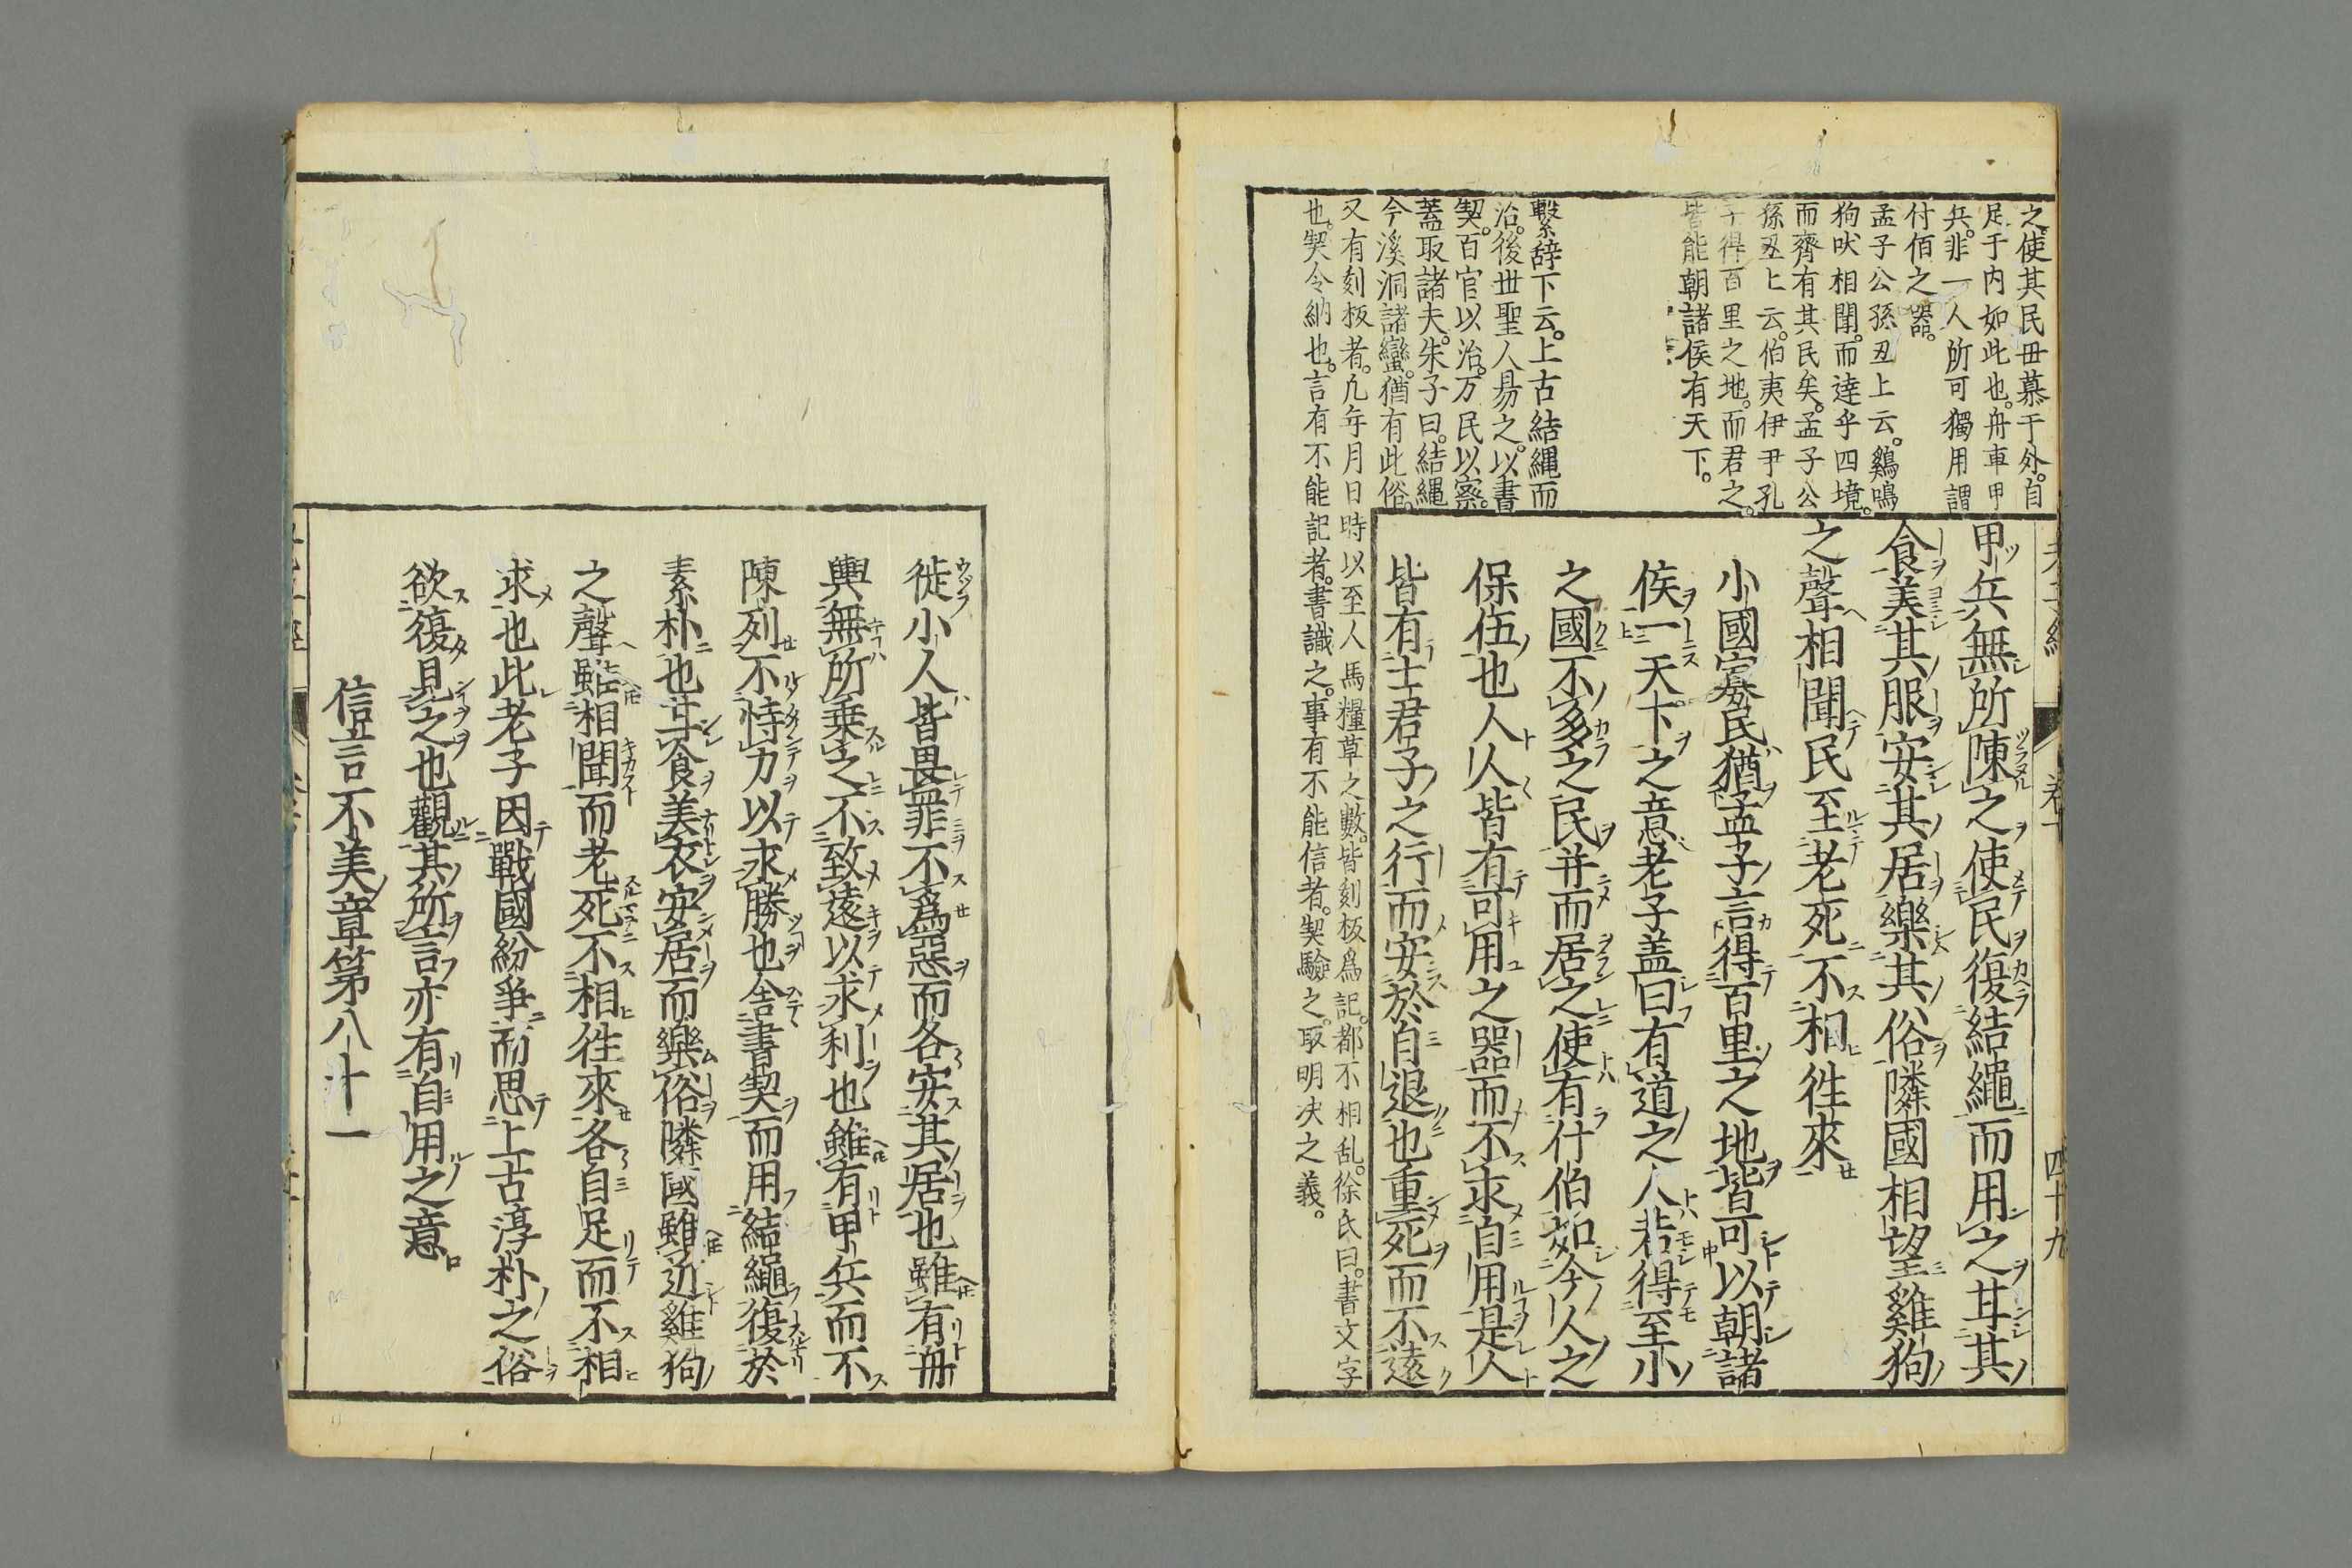 之。使其民毋慕于外。自
足于内如此也。舟車甲
兵。非一人所可獨用謂
什佰之器。
孟子公孫丑上云。鷄鳴
狗吠相聞。而達乎四境。
而齊有其民矣。孟子公
孫丑上云。伯夷伊尹孔
子得百里之地。而君之。
皆能朝諸侯有天下。
繫辞下云。上古結繩而
治。後世聖人易之。以書
契。百官以治。万民以察。
蓋取諸夬。朱子曰。結繩
今溪洞諸蠻。猶有此俗。
又有刻板者。凡年月日時以至人馬糧草之數。皆刻板爲記。都不相乱。徐氏曰。書文字
也。契合納也。言有不能記者。書識之。事有不能信者。契驗之。取明决之義。
卷下
四十九
甲兵無所陳之使民復結繩而用之甘其
食美其服安其居樂其俗隣國相望雞狗
之聲相聞民至老死不相徃來
小國寡民猶孟子言得百里之地皆可以朝諸
侯一天下之意老子盖曰有道之人若得至小
之國不多之民并而居之使有什伯如今人之
保伍也人人皆有可用之器而不求自用是人
皆有士君子之行而安於自退也重死而不遠
徙小人皆畏罪不爲惡而各安其居也雖有舟
輿無所乗之不致遠以求利也雖有甲兵而不
陳列不恃力以求勝也舎書契而用結繩復於
素朴也甘食美衣安居而樂俗隣國雖近雞狗
之聲雖相聞而老死不相徃來各自足而不相
求也此老子因戰國紛爭而思上古淳朴之俗
欲復見之也觀其所言亦有自用之意
信言不美章第八十一